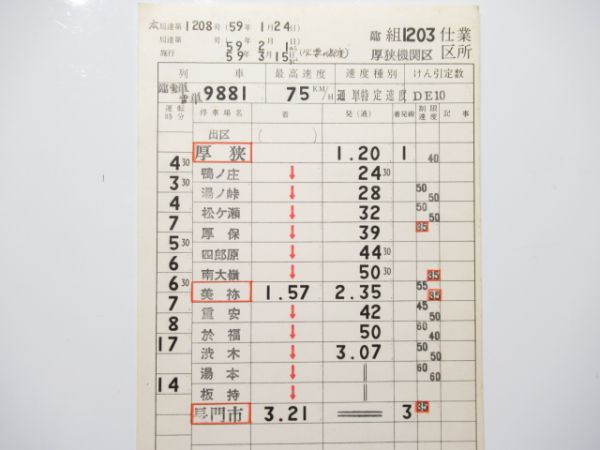 広 局達第1208号 (59年 1月24日)
局達第 号 ( 年 月 日)
施行 59年 2月 1日
59年 3月15日
臨 組1203仕業
厚狭機関区 区所
列 車 最高速度 速度種別 けん引定数
臨電単
雪単 9881 75KM/H 通 単特定速度 DE10
運転時分 停車場名 着 発(通) 着発線 制限速度 記事
出区 ( )
厚狭 1.20 1 40
4 30
鴨ノ庄 ↓ 24 30
3 30
湯ノ峠 ↓ 28 50 50
4
松ケ瀬 ↓ 32 50 50
7
厚保 ↓ 39 35
5 30
四郎原 ↓ 44 30
6
南大嶺 ↓ 50 30 35
6 30
美祢 1.57 2.35 55 35
7
重安 ↓ 42 45 50
8
於福 ↓ 50 60 40
17
渋木 ↓ 3.07 50 50
湯本 ↓ ‖ 60 60
14
板持 ↓ ‖
長門市 3.21 ═ 3 35